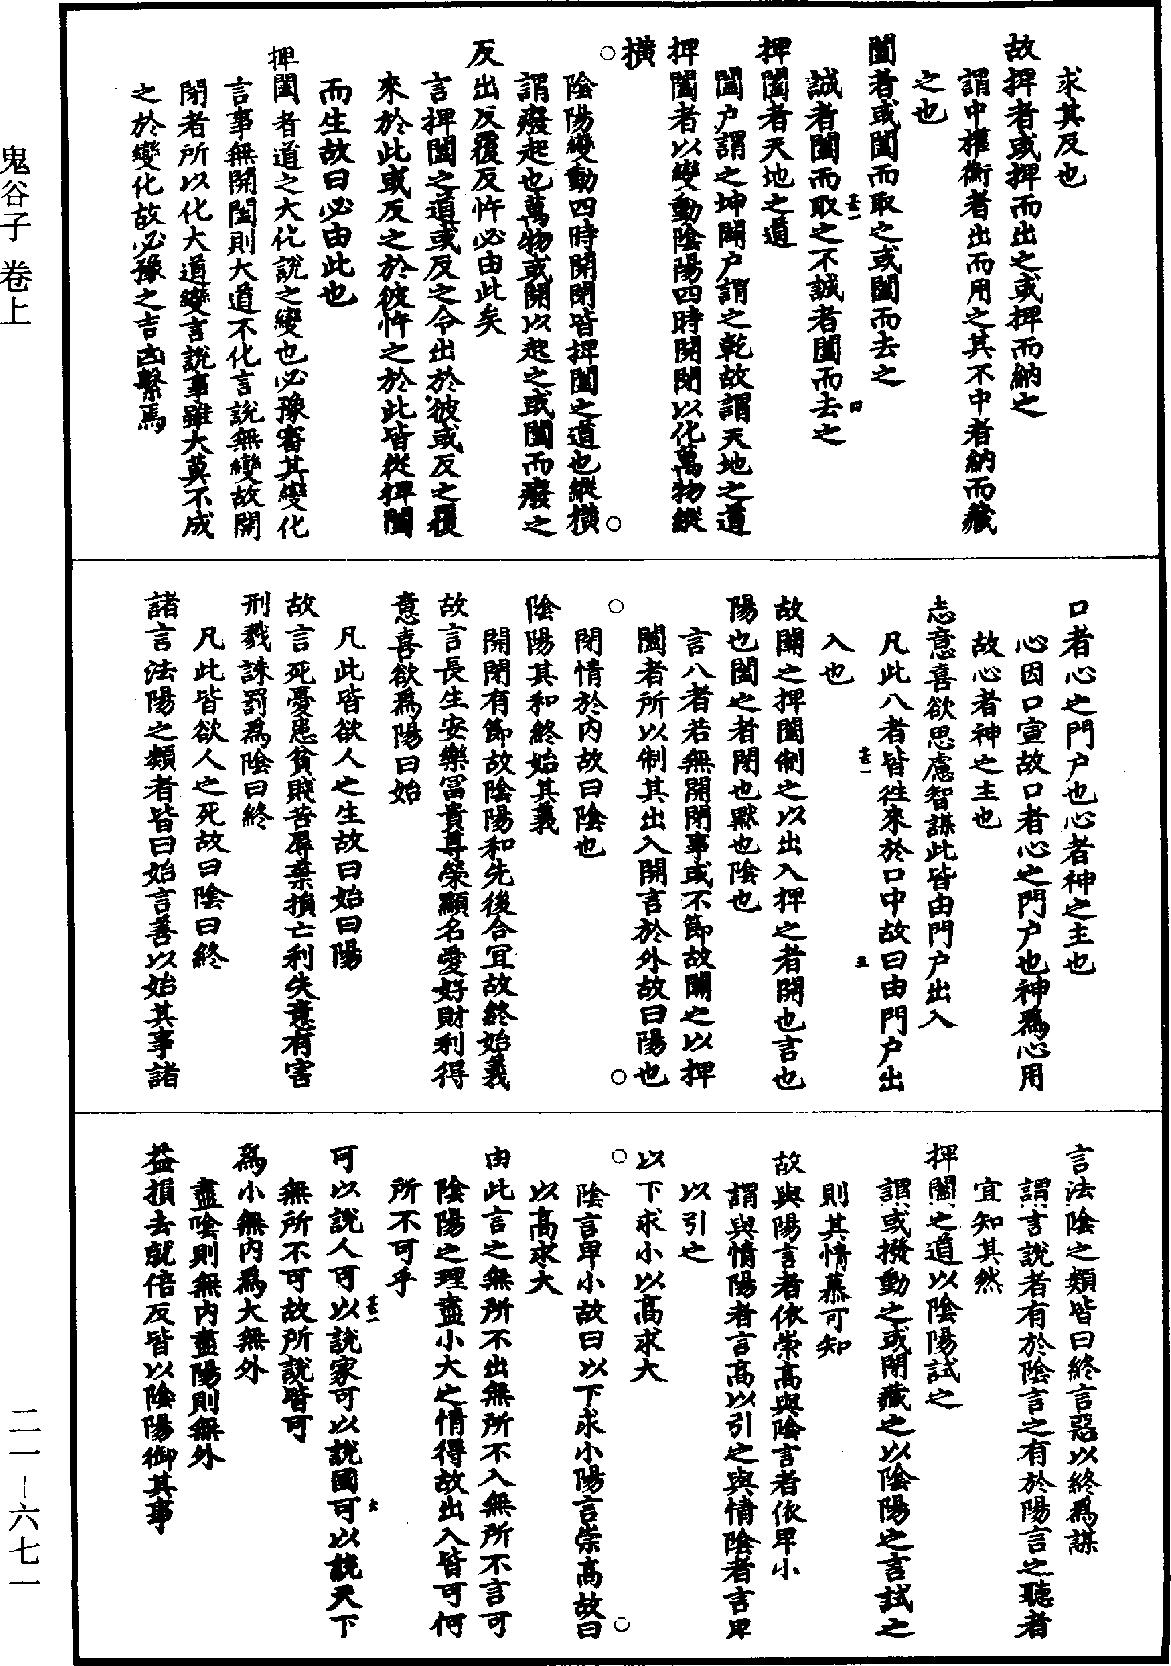 求其反也
故捭者或捭而出之或捭而納之
謂中權衡者出而用之其不中者納而藏
之也
闔者或闔而取之或闔而去之
誠者闔而取之不誠者闔而去之
捭闔者天地之道
闔户謂之坤開户謂之乾故謂天地之道
捭闔者以變動陰陽四時開閉以化萬物縱
橫
陰陽變動四時開閉皆捭闔之道也縱橫
謂廢起也萬物或開以起之或闔而廢之
反出反覆反忤必由此矣
言捭闔之道或反之令出於彼或反之覆
來於此或反之於彼忤之於此皆從捭闔
而生故曰必由此也
捭闔者道之大化說之變也必豫審其變化
言事無開闔則大道不化言說無變故開
閉者所以化大道變言說事雖大莫不成
之於變化故必豫之吉凶繫焉
口者心之門户也心者神之主也
心因口宣故口者心之門户也神爲心用
故心者神之主也
志意喜欲思慮智謀此皆由門户出入
凡此八者皆往來於口中故曰由門户出
入也
故關之捭闔制之以出入捭之者開也言也
陽也闔之者閉也默也陰也
言八者若無開閉事或不節故關之以捭
闔者所以制其出入開言於外故曰陽也
閉情於内故曰陰也
陰陽其和終始其義
開閉有節故陰陽和先後合宜故終始義
故言長生安樂富貴尊榮顯名愛好財利得
意喜欲爲陽曰始
凡此皆欲人之生故曰始曰陽
故言死憂患貧賤苦辱棄損亡利失意有害
刑戮誅罰爲陰曰終
凡此皆欲人之死故曰陰曰終
諸言法陽之類者皆曰始言善以始其事諸
言法陰之類皆曰終言惡以終爲謀
謂言說者有於陰言之有於陽言之聽者
宜知其然
捭闔之道以陰陽試之
謂或撥動之或閉藏之以陰陽之言試之
則其情慕可知
故與陽言者依崇高與陰言者依卑小
謂與情陽者言高以引之與情陰者言卑
以引之
以下求小以高求大
陰言卑小故曰以下求小陽言崇高故曰
以高求大
由此言之無所不出無所不入無所不言可
陰陽之理盡小大之情得故出入皆可何
所不可乎
可以說人可以說家可以說國可以說天下
無所不可故所說皆可
爲小無内爲大無外
盡陰則無内盡陽則無外
益損去就倍反皆以陰陽御其事
鬼谷子 卷上
二一—六七一